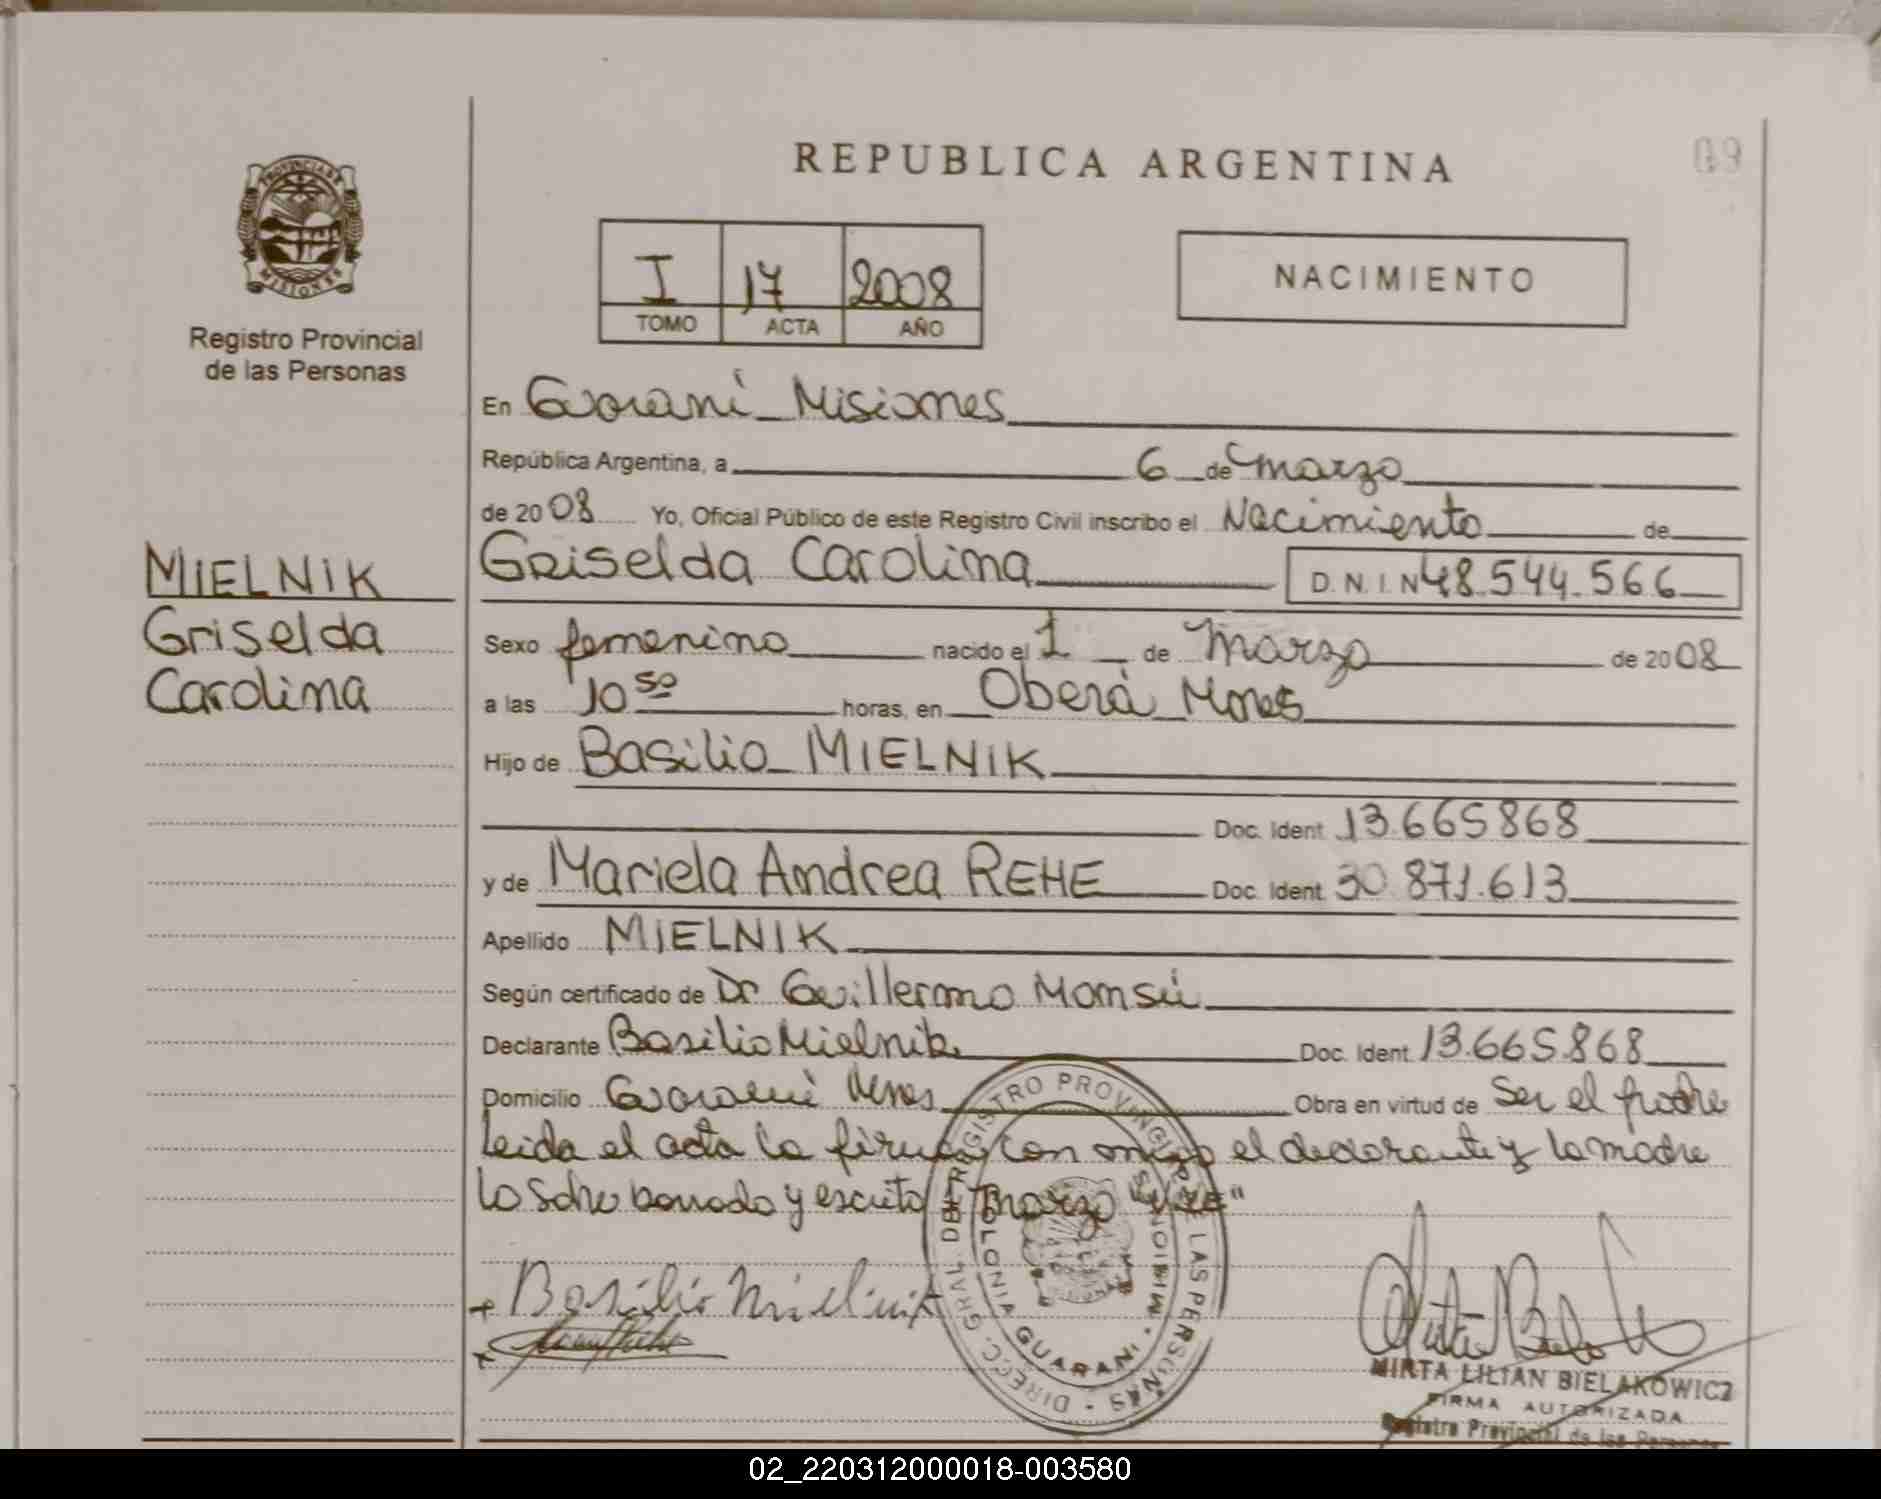 REPUBLICA ARGENTINA
09
PROVINCIA DE
MISIONES
Registro Provincial
de las Personas
I 17 2008
TOMO ACTA AÑO
NACIMIENTO
En Guarani Misiones
República Argentina, a 6 de Marzo
de 2008 Yo, Oficial Público de este Registro Civil inscribo el Nacimiento de
MIELNIK
Griselda
Carolina
Griselda Carolina D.N.I.N 48.544.566
Sexo femenino nacido el 1 de Marzo de 2008
a las 10 50 horas, en Oberá Mnes
Hijo de Basilio MIELNIK
Doc. Ident. 13.665868
y de Mariela Andrea REHE Doc. Ident. 30.871.613
Apellido MIELNIK
Según certificado de Dr Guillermo
Declarante Basilio Mielnik Doc. Ident. 13.665.868
Domicilio Guarani Mnes Obra en virtud de Ser el padre
Leida el acta la firma con migo el declarante y la madre
lo Sobre borrado y escrito "Marzo"
Basilio Mielnik
DIRECC. GRAL. DEL REGISTRO PROVINCIAL DE LAS PERSONAS
COLONIA GUARANI MISIONES
MIRTA LILIAN BIELAKOWICZ
FIRMA AUTORIZADA
Registro Provincial de las Personas
02_220312000018-003580